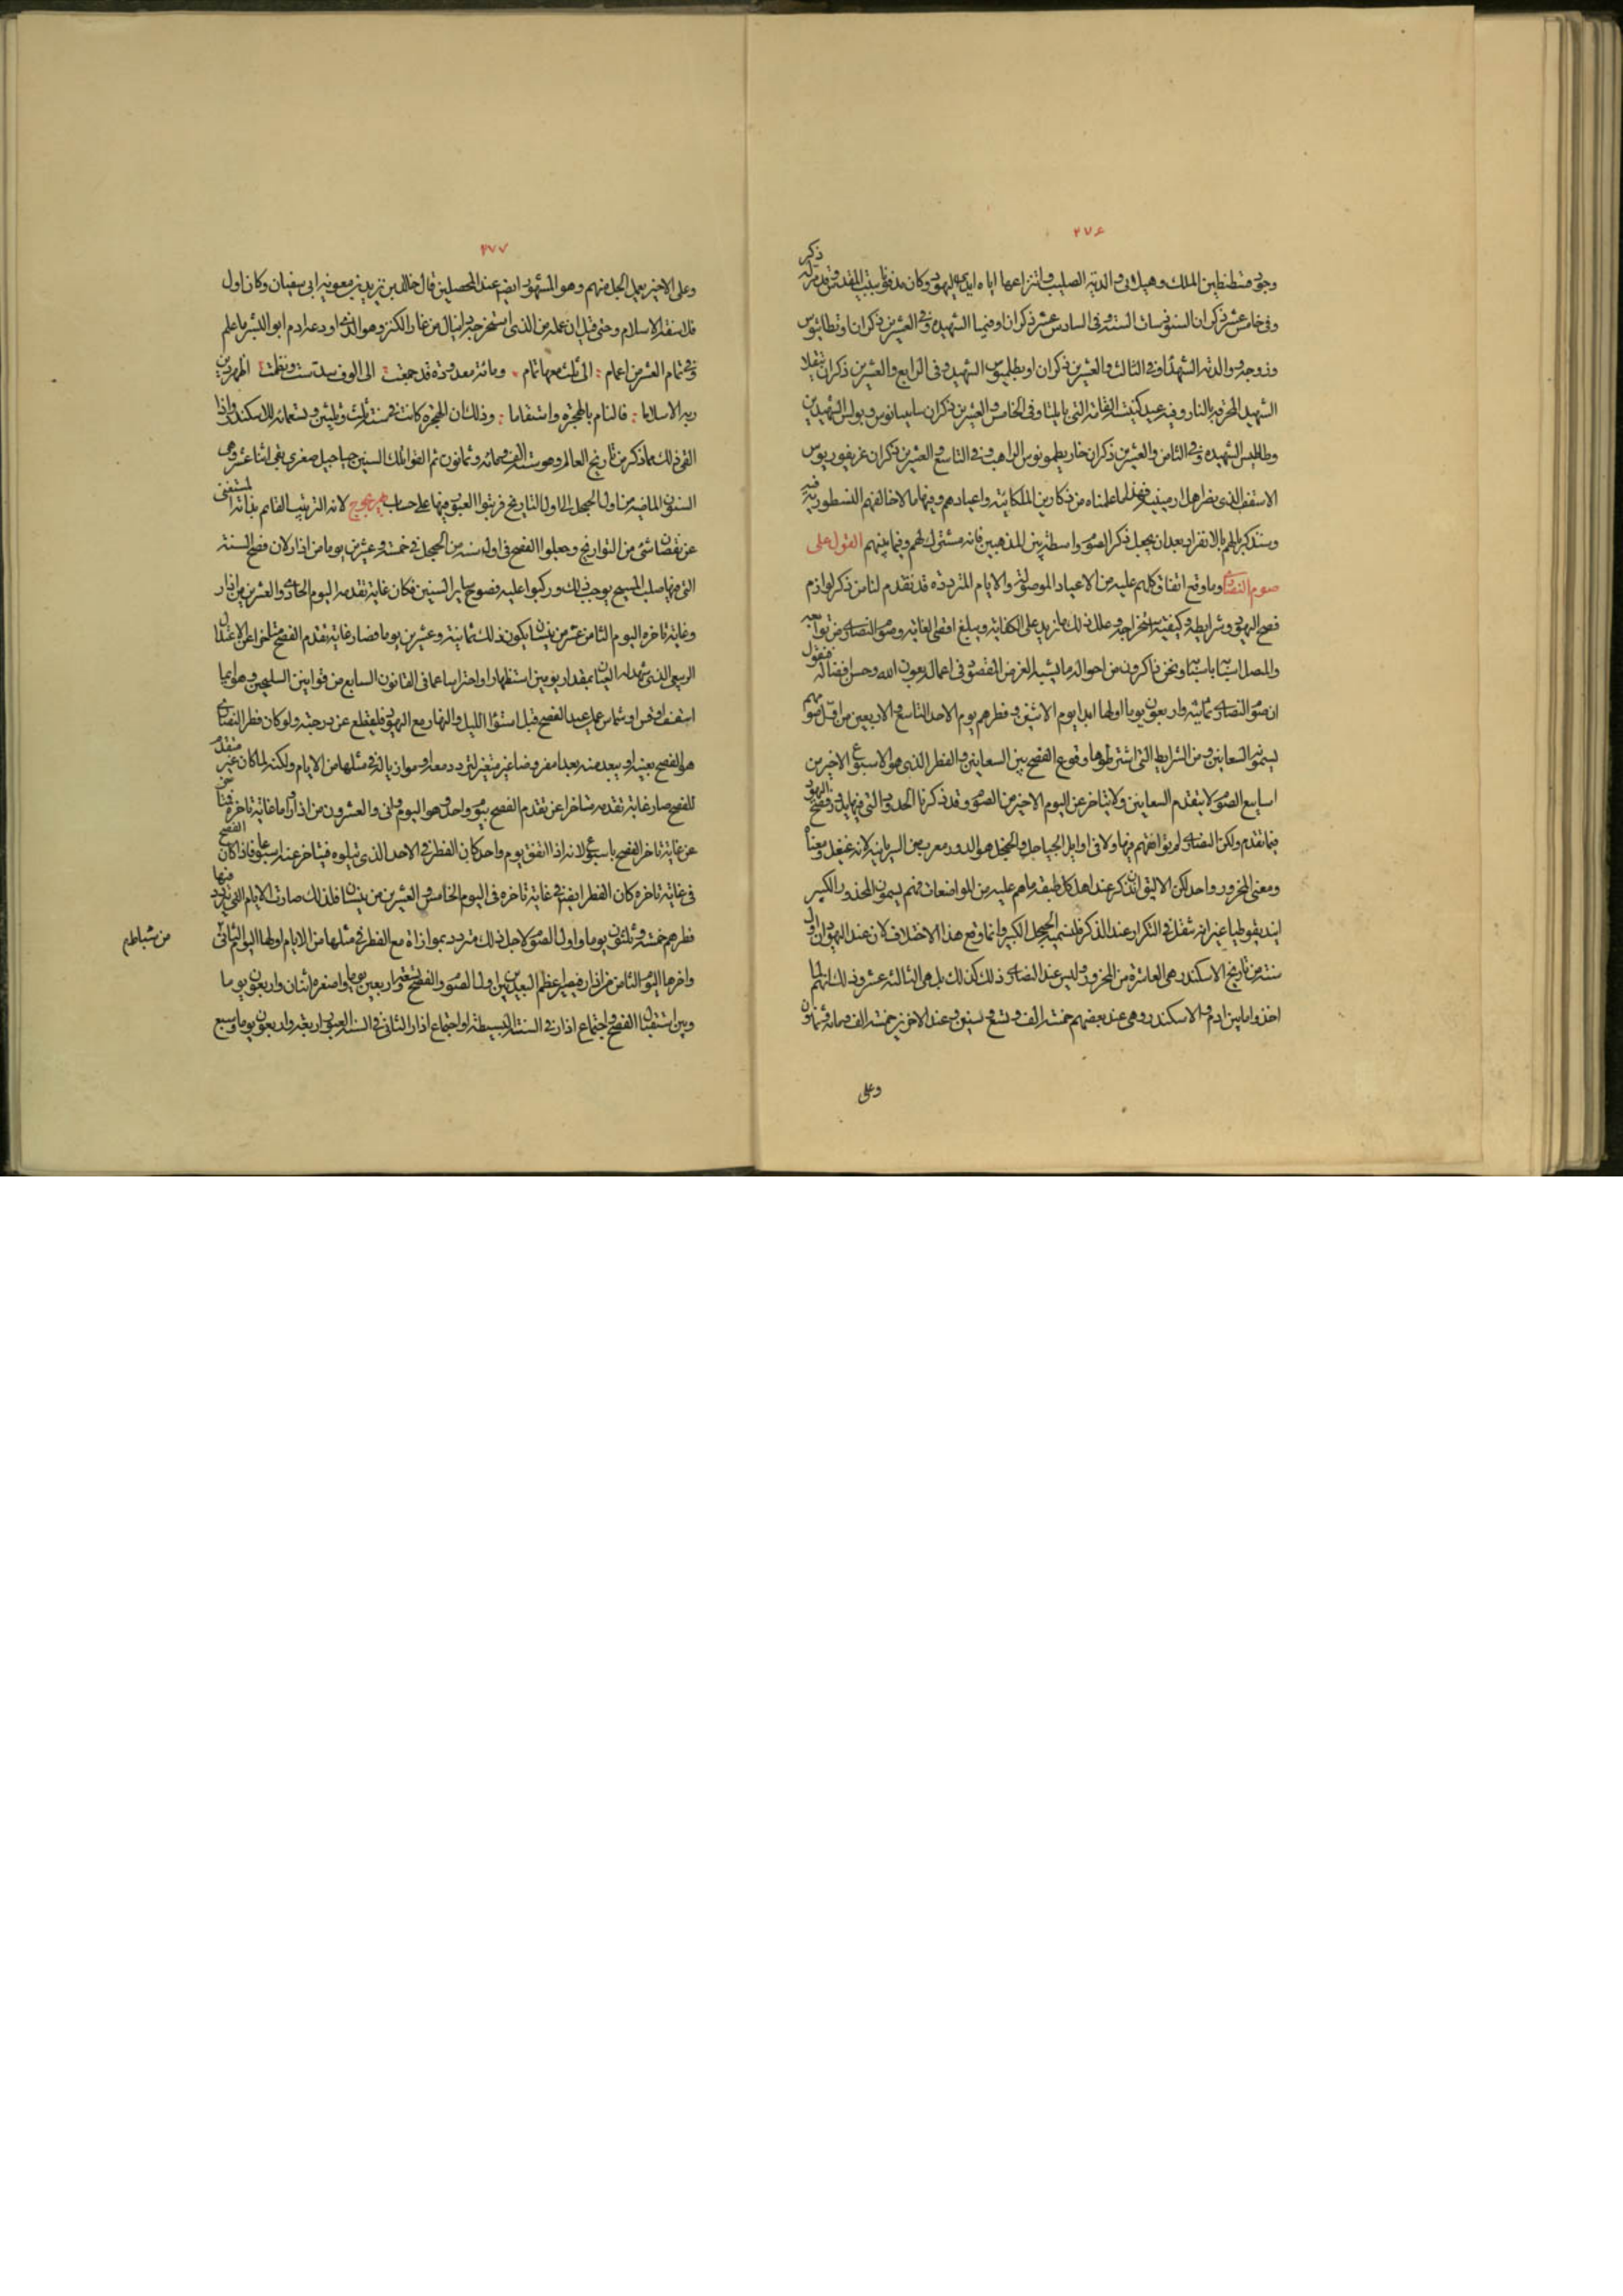 ٢٧٦
ذكر
وجود قسطنطين الملك وهيلانى والدته الصليب وانتزاعها اياه ايدى اليهود وكان مدفونا ببيت المقدس وقد مر له
وفى خامس عشر ذكران السنودسات الستة وفى السادس عشر ذكران اوفيميا الشهيدة وفى العشرين ذكران اوسطاثيوس
وزوجه وولدته الشهداء وفى الثالث والعشرين ذكران الشهيد وفى الرابع والعشرين ذكران
الشهيد المحرقة بالنار وفيه عيد كنيست التى بايليا وفى الخامس والعشرين ذكران وبولس الشهيدين
الشهيدة وفى الثامن والعشرين ذكران خاريطون الراهب وفى التاسع والعشرين ذكران غريغوريوس
الاسقف الذى نصر اهل ارمينية فهذا ما علمناه من ذكارين الملكائية واعيادهم وفيها ما لا خالفهم النسطورية فيه
وسنذكر ما لهم بالانفراد بعد ان نجعل ذكر الصوم واسطة بين المذهبين فانه مشترك لهم وفيما بينهم القول على
صوم النصارى وما وقع اتفاق كلهم عليه من الاعياد الموصولة والايام المترددة قد تقدم لنا من ذكر لوازم
فصح اليهود وشرايطه وكيفية استخراجه وعلل ذلك ما يزيد على الكفاية ويبلغ اقصى الغاية وصوم النصارى من توابعه
والمتصل اسبابه باسبابها ونحن ذاكرون من احواله ما يشبه الغرض المقصود فى اعماله بعون الله وحسن افضاله فنقول
ان صوم النصارى ثمانية واربعون يوما اولها ابدا يوم الاثنين وفطرهم يوم الاحد التاسع والاربعين من اول صومهم
يسمى السعانين ومن الشرايط التى اشترطوها وقوع الفصح بين السعانين والفطر الذى هو الاسبوع الاخير من
اسابيع الصوم لا يتقدم السعانين ولا يتاخر عن اليوم الاخير من الصوم وقد ذكرنا الحدود التى فيها يدور فصح اليهود
فيما تقدم ولكن النصارى لم توافقهم فيها ولا فى اوايل الجياجل والججل هو الدور معرب من السريانية لانه غيغل ومعناه
ومعنى المحزور واحد لكن الاليق ان نذكر عند اهل كل طبقة ما هم عليه من المواضعات فهم يسمون المحذور الكبير
اينديقوطيا غير انه ثقل فى التكرار عند الذكر فلنسميه الججل الكبير وانما وقع هذا الاختلاف لان عند اليهود ان اول
سنة من تاريخ الاسكندر هى العاشرة من المحزور وليس عند النصارى ذلك كذلك بل هى الثالثة عشر وذلك انهم لما
اخذوا ما بين ادم والاسكندر وهى عند بعضهم خمسة الف وتسع وستون وعند الاخرين خمسة الف ومائة وثمانون
وعلى
٢٧٧
وعلى الاخير يعمل الجل منهم وهو المشهور ايضا عند المحصلين قال خالد بن يزيد بن معوية ابى سفيان وكان اول
فلاسفة الاسلام وحتى قيل ان علمه من الذى استخرجه دانيال من غار الكنز وهو الذى اودعه ادم ابو البشر ما علم
وفى تمام العشر من اعوام : الى ثلث معها تمام . ومائة معدودة قد جمعت الى الوف سدست ونظمت اظهر دين
ربه الاسلاما : فالنام بالهجرة واستقاما : وذلك ان الهجرة كانت فى سنة ثلث وثلثين وتسعمائة للاسكندر واذا
القى ذلك مما ذكر من تاريخ العالم وهو ستة الف ومائة وثمانون ثم القوا تلك السنين جياجل صغرى بقى اثنا عشر وهى
السنون الماضية من اول الججل الى اول التاريخ فرتبوا العبور فيها على حساب بهزيجوج لانه الترتيب القائم بذاته المستغنى
عن نقصان شئ من التواريخ وجعلوا الفصح فى اول سنة من الججل فى خمسة وعشرين يوما من اذار لان فصح السنة
التى فيها صلب المسيح يوجب ذلك وركبوا عليه فصوح ساير السنين فكان غاية تقدمه اليوم الحادى والعشرين من اذار
وغاية تاخره اليوم الثامن عشر من نيسان يكون ذلك ثمانية وعشرين يوما فصار غاية تقدم الفصح متاخرا عن الاعتدال
الربيعى الذى شهد له العيان بمقدار يومين استظهارا واحتراسا عما فى القانون السابع من قوانين السليحين وهو ايما
اسقف او قس او شماس عمل عيد الفصح قبل استواء الليل والنهار مع اليهود فليقطع عن درجته ولو كان فطر النصارى
هو الفصح بعينه او يبعد منه بعدا مفروضا غير متغير لتردد معه او موازيا له فى مثلها من الايام ولكنه لما كان غير متقدم
للفصح صار غاية تقدمه متاخرا عن تقدم الفصح بيوم واحد وهو اليوم الثانى والعشرون من اذار واما غاية تاخره فيتاخر
عن غاية تاخر الفصح باسبوع لانه اذا اتفق يوم واحد كان الفطر فى الاحد الذى يتلوه فيتاخر عنه اسبوعا فاذا كان الفصح
فى غاية تاخره كان الفطر ايضا فى غاية تاخره فى اليوم الخامس والعشرين من نيسان فلذلك صارت الايام التى يتردد فيها
فطرهم خمسة وثلثون يوما واول الصوم لاجل ذلك متردد بموازاة مع الفطر فى مثلها من الايام اولها اليوم الثانى
من شباط م
واخرها اليوم الثامن من اذار فيصير اعظم البعدين بين اول الصوم والفصح تسعة واربعين يوما واصغره اثنان واربعون يوما
وبين استقبال الفصح واجتماع اذار فى السنة البسيطة او اجتماع اذار الثانى فى السنة العبور اربعة واربعون يوما وسبع